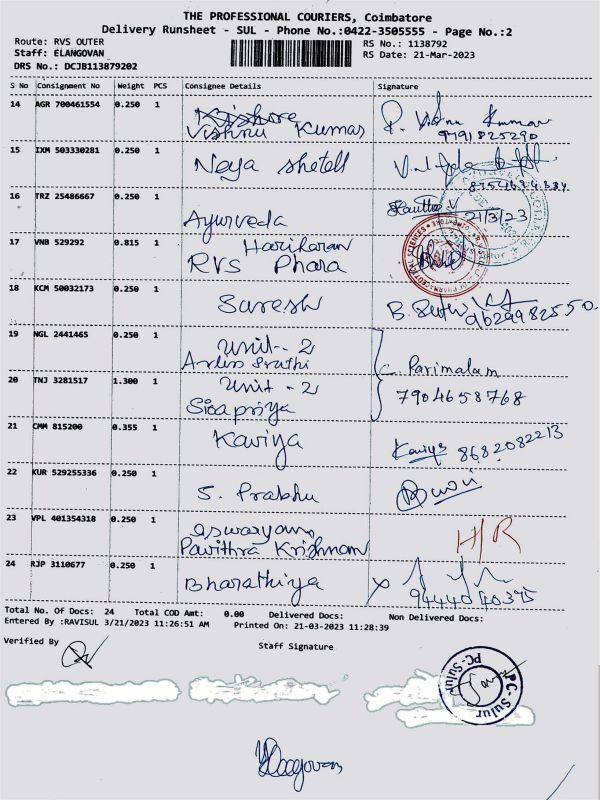 THE PROFESSIONAL COURIERS, Coimbatore
Delivery Runsheet - SUL - Phone No.:0422-3505555 - Page No.:2
Route: RVS OUTER
RS No.: 1138792
Staff: ELANGOVAN
RS Date: 21-Mar-2023
DRS No.: DCJB113879202
S No Consignment No Weight PCS Consignee Details Signature
14 AGR 700461554 0.250 1 Kishore
Vishnu Kumar
R. Vishnu Kumar
9791825290
15 IXM 503330281 0.250 1 Naya shetell
16 TRZ 25486667 0.250 1 Ayurveda
21/3/23
17 VNB 529292 0.815 1 Hariharan
RVS Phara
18 KCM 50032173 0.250 1 Suresh
9629982550.
19 NGL 2441465 0.250 1 Unit - 2
20 TNJ 3281517 1.300 1 Unit - 2
Sivapriya
C. Parimalam
7904658768
21 CMM 815200 0.355 1 Kaviya
Kaviya 8682082213
22 KUR 529255336 0.250 1 S. Prabhu
23 VPL 401354318 0.250 1
Pavithra Krishnan
H/R
24 RJP 3110677 0.250 1 Bharathiya
9444040375
Total No. Of Docs: 24 Total COD Amt: 0.00 Delivered Docs: Non Delivered Docs:
Entered By :RAVISUL 3/21/2023 11:26:51 AM Printed On: 21-03-2023 11:28:39
Verified By
Staff Signature
PC-Sulur
PC-Sulur
Elangovan